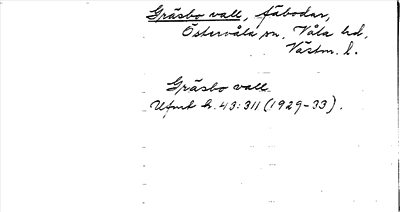 Gräsbo vall, fäbodar,
Östervåla sn. Våla hd,
Västm. l.
Gräsbo vall
Ufmt h. 43:311 (1929-33).